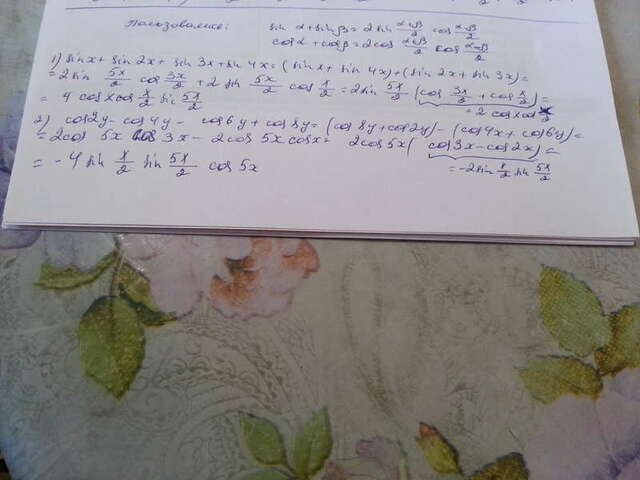 Пользовались:
sin α + sin β = 2 sin (α+β)/2 cos (α-β)/2
cos α + cos β = 2cos (α+β)/2 cos (α-β)/2
1) sin x + sin 2x + sin 3x + sin 4x = (sin x + sin 4x) + (sin 2x + sin 3x) =
= 2 sin 5x/2 cos 3x/2 + 2 sin 5x/2 cos x/2 = 2 sin 5x/2 (cos 3x/2 + cos x/2) =
= 2 cos x cos x/2
= 4 cos x cos x/2 sin 5x/2
2) cos 2y - cos 4y - cos 6y + cos 8y = (cos 8y + cos 2y) - (cos 4x + cos 6y) =
= 2cos 5x cos 3x - 2cos 5x cos x = 2cos 5x (cos 3x - cos 2x) =
= -2 sin x/2 sin 5x/2
= - 4 sin x/2 sin 5x/2 cos 5x